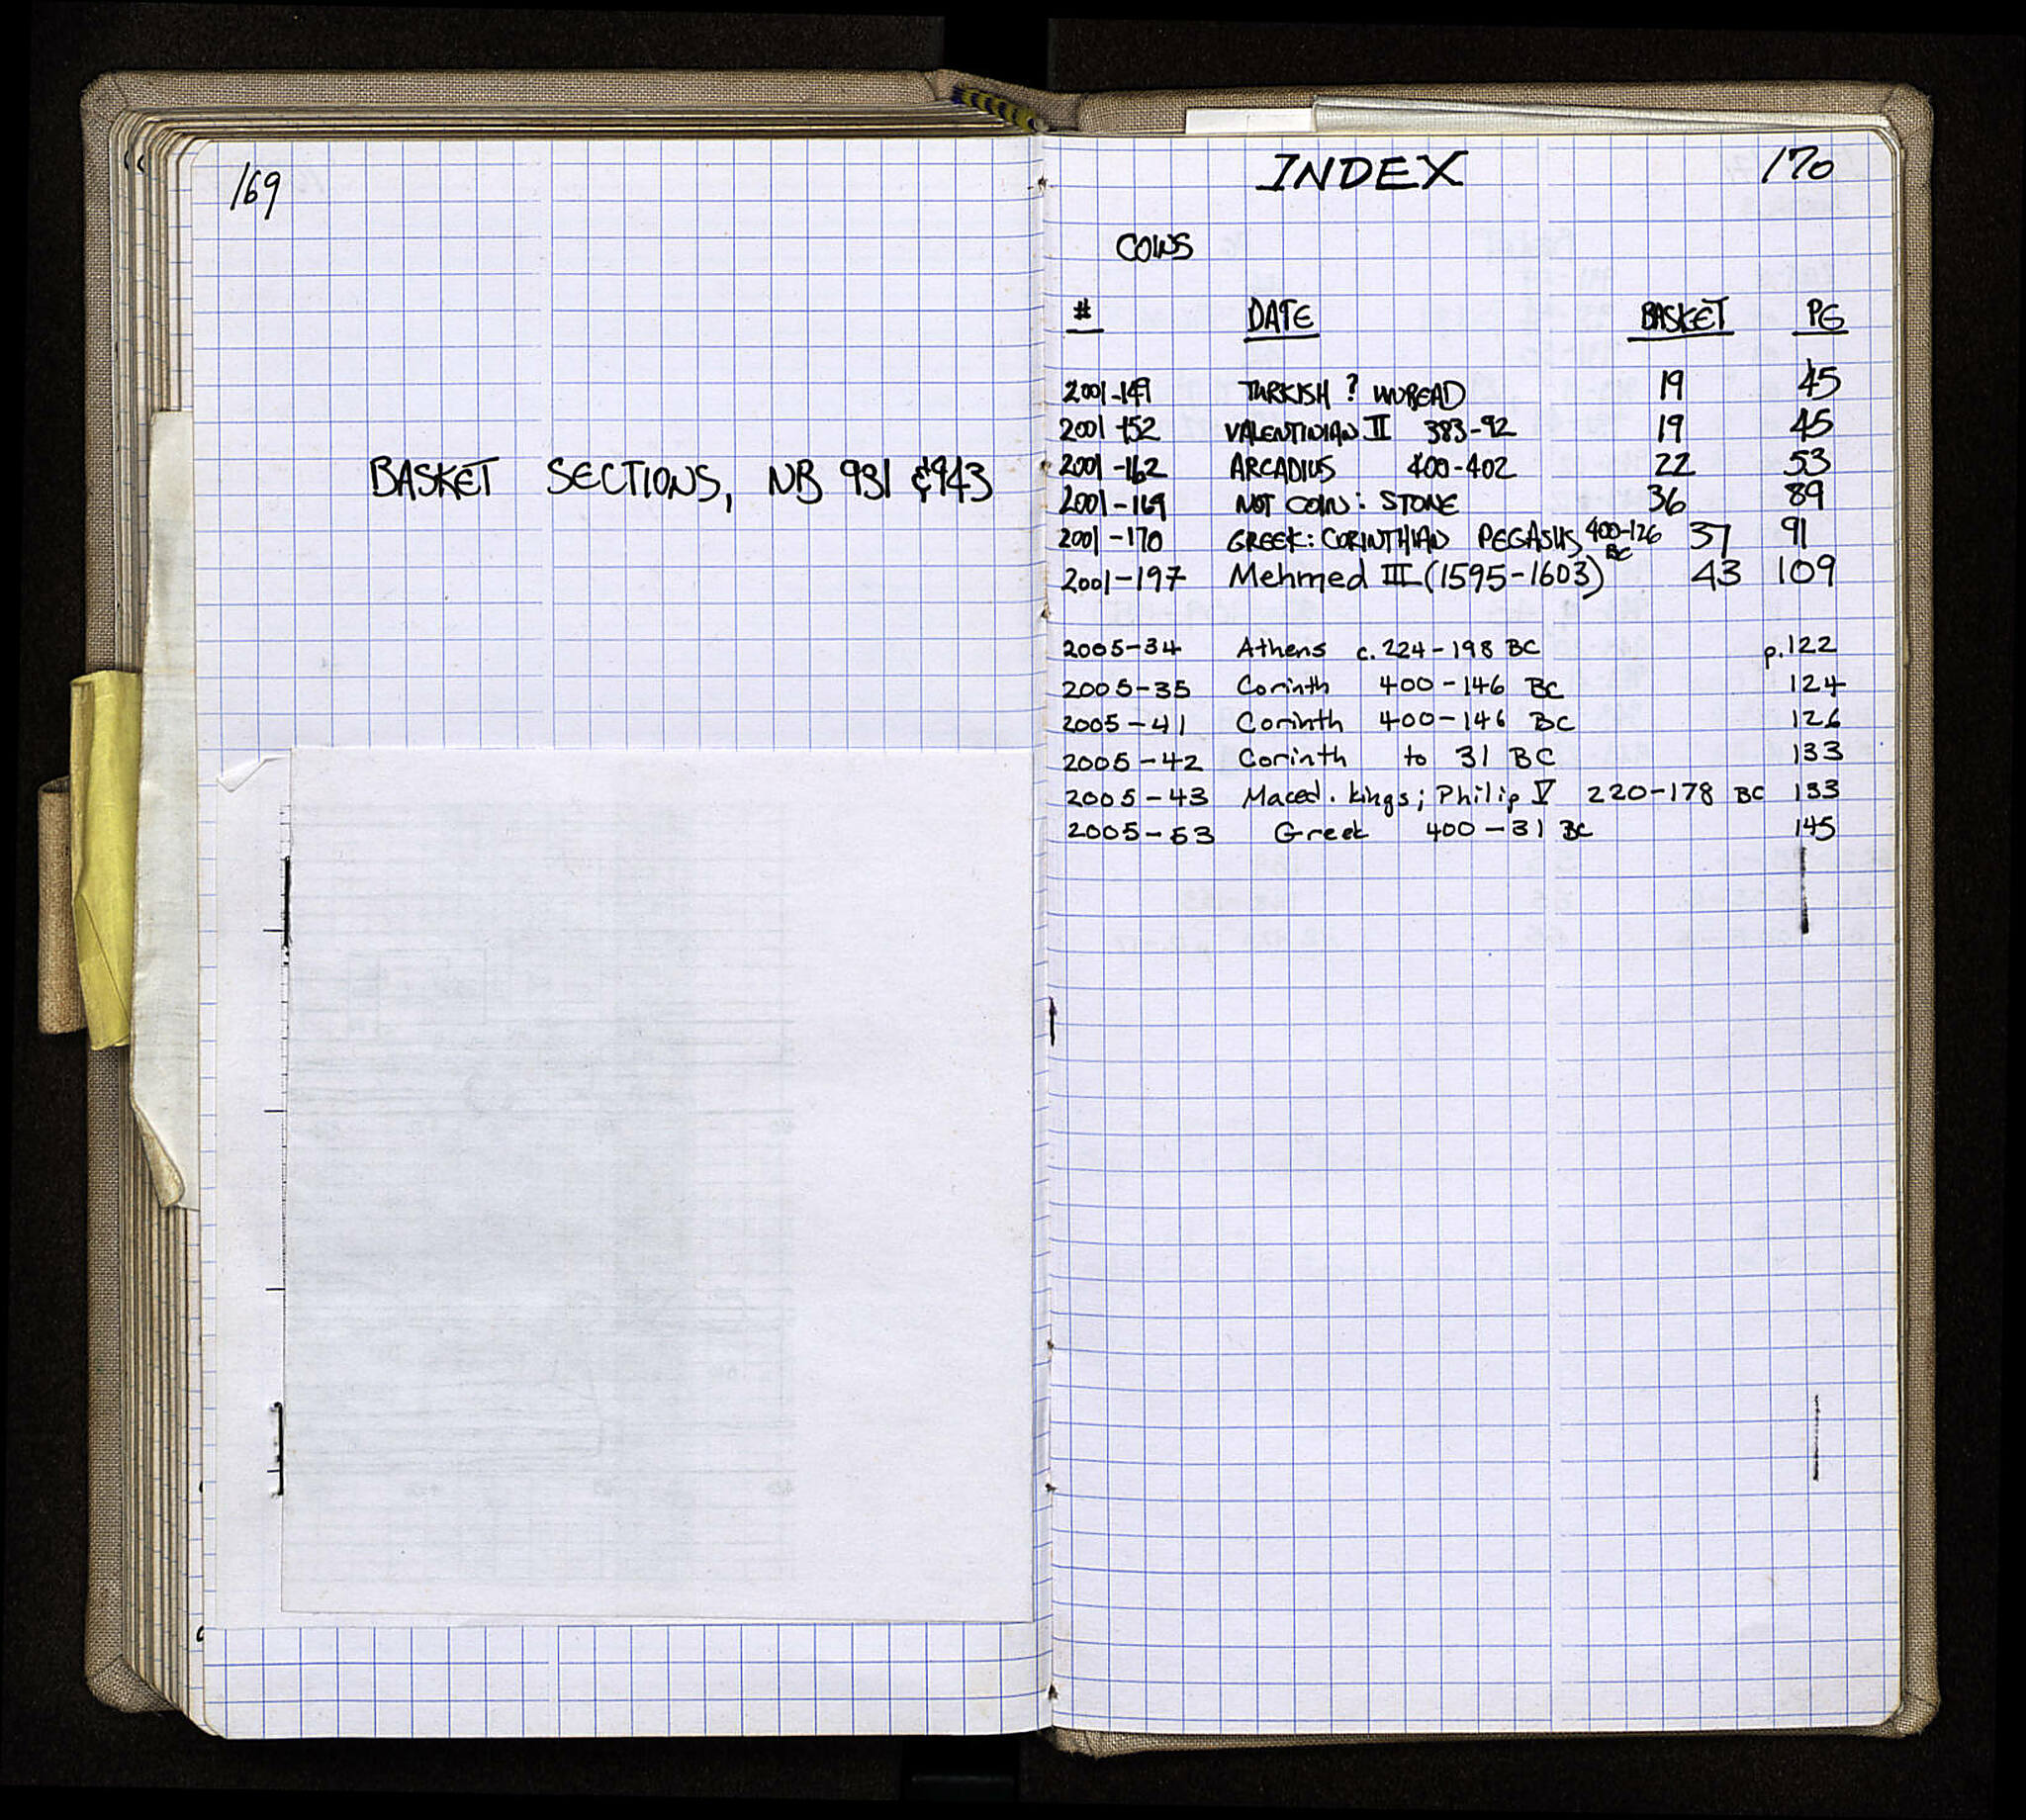 169
BASKET SECTIONS, NB 931 & 943
INDEX 170
COINS
# DATE BASKET PG
2001-149 TURKISH ? UNREAD 19 45
2001-152 VALENTINIAN II 383-92 19 45
2001-162 ARCADIUS 400-402 22 53
2001-169 NOT COIN: STONE 36 89
2001-170 GREEK: CORINTHIAN PEGASUS, 400-126 BC 37 91
2001-197 Mehmed III (1595-1603) 43 109
2005-34 Athens c. 224-198 BC p.122
2005-35 Corinth 400-146 BC 124
2005-41 Corinth 400-146 BC 126
2005-42 Corinth to 31 BC 133
2005-43 Maced. kings; Philip V 220-178 BC 133
2005-53 Greek 400-31 BC 145